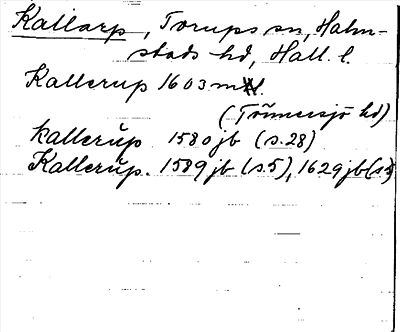 Kallarp, Torups sn, Halm-
stads hd, Hall. l.
Kallerup 1603 m
(Tönnersjö hd)
Kallerŭp 1580 jb (s. 28)
Kallerŭp. 1589 jb (s. 5), 1629 jb (s.